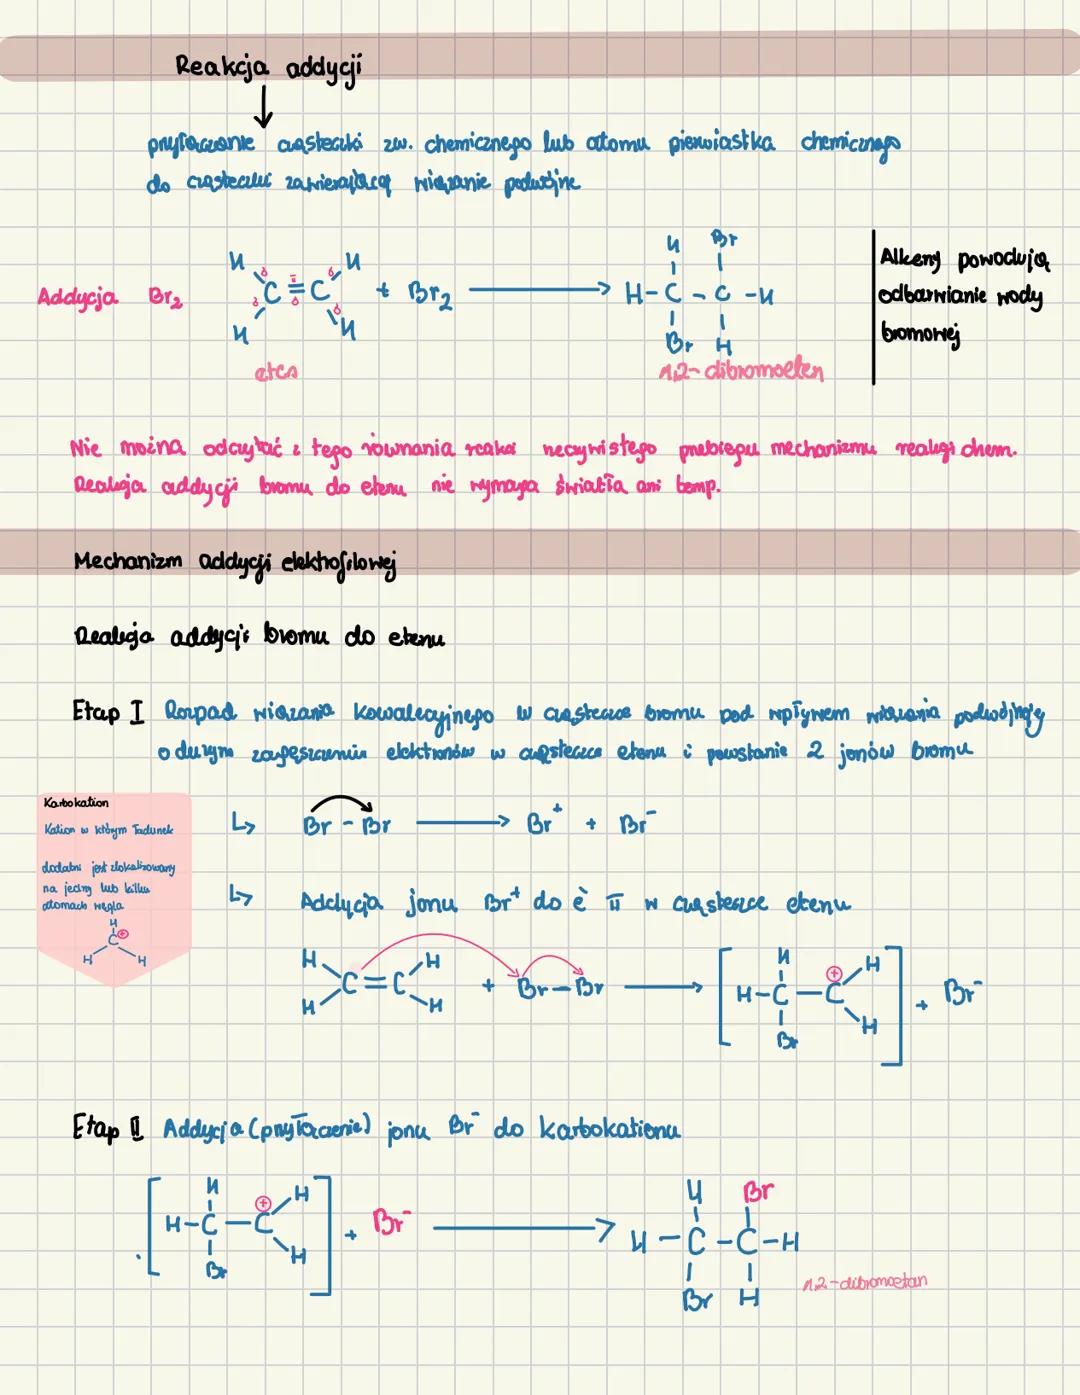 Reakcja addycji
↓
przyłączanie cząsteczki zw. chemicznego lub atomu pierwiastka chemicznego
do cząsteczki zawierającej wiązanie podwójne
Addycja Br2
H H C = C H H + Br2 → H-C-C-H H Br Br H
eten
1,2-dibromoeten
Alkeny powodują
odbarwianie wody
bromowej
Nie można odczytać z tego równania reakcji rzeczywistego przebiegu mechanizmu reakcji chem.
Reakcja addycji bromu do etenu nie wymaga światła ani temp.
Mechanizm addycji elektrofilowej
Reakcja addycji bromu do etenu
Etap I Rozpad wiązania kowalecyjnego w cząsteczce bromu pod wpływem wiązania podwójnego
o dużym zagęszczeniu elektronów w cząsteczce etenu i powstanie 2 jonów bromu
Karbokation
Kation w którym ładunek
dodatni jest zlokalizowany
na jednym lub kilku
atomach węgla
H C ⊕ H H
↳ Br - Br → Br+ + Br-
↳ Addycja jonu Br+ do e π w cząsteczce etenu
H H C = C H H + Br - Br → [H-C-C H Br ⊕ H H] + Br-
Etap II Addycja (przyłączenie) jonu Br- do karbokationu
[H-C-C H Br ⊕ H H] + Br- → H-C-C-H H Br Br H
1,2-dibromoetan